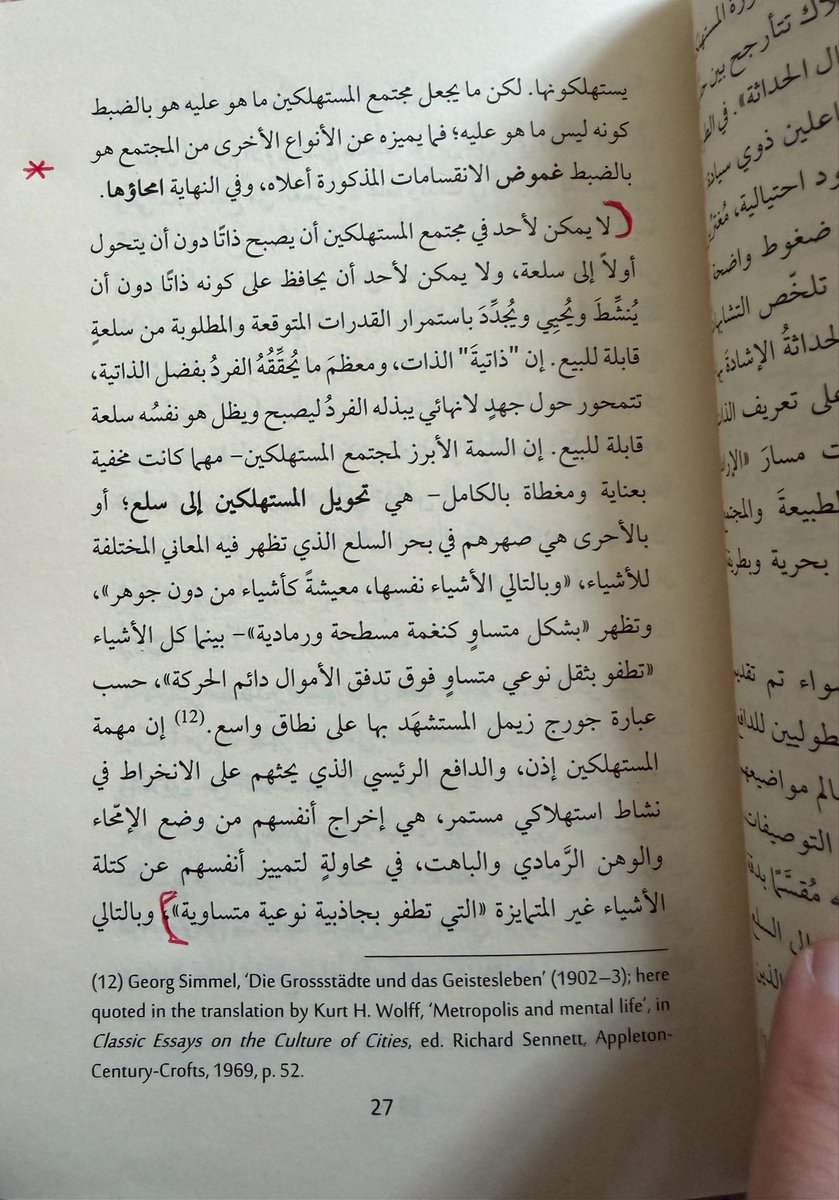 يستهلكونها. لكن ما يجعل مجتمع المستهلكين ما هو عليه هو بالضبط
كونه ليس ما هو عليه؛ فما يميزه عن الأنواع الأخرى من المجتمع هو
بالضبط غموض الانقسامات المذكورة أعلاه، وفي النهاية امحاؤها.
لا يمكن لأحد في مجتمع المستهلكين أن يصبح ذاتًا دون أن يتحول
أولاً إلى سلعة، ولا يمكن لأحد أن يحافظ على كونه ذاتًا دون أن
يُنشِّطَ ويُحيِي ويُجدِّدَ باستمرار القدرات المتوقعة والمطلوبة من سلعةٍ
قابلة للبيع. إن "ذاتيةَ" الذات، ومعظمَ ما يُحقِّقُهُ الفردُ بفضل الذاتية،
تتمحور حول جهدٍ لانهائي يبذله الفردُ ليصبح ويظل هو نفسُه سلعة
قابلة للبيع. إن السمة الأبرز لمجتمع المستهلكين– مهما كانت مخفية
بعناية ومغطاة بالكامل– هي تحويل المستهلكين إلى سلع؛ أو
بالأحرى هي صهرهم في بحر السلع الذي تظهر فيه المعاني المختلفة
للأشياء، «وبالتالي الأشياء نفسها، معيشةً كأشياء من دون جوهر»،
وتظهر «بشكل متساوٍ كنغمة مسطحة ورمادية»– بينما كل الأشياء
«تطفو بثقل نوعي متساوٍ فوق تدفق الأموال دائم الحركة»، حسب
عبارة جورج زيمل المستشهَد بها على نطاق واسع.(12) إن مهمة
المستهلكين إذن، والدافع الرئيسي الذي يحثهم على الانخراط في
نشاط استهلاكي مستمر، هي إخراج أنفسهم من وضع الإمّحاء
والوهن الرَّمادي والباهت، في محاولةٍ لتمييز أنفسهم عن كتلة
الأشياء غير المتمايزة «التي تطفو بجاذبية نوعية متساوية»، وبالتالي
(12) Georg Simmel, ‘Die Grossstädte und das Geistesleben’ (1902–3); here
quoted in the translation by Kurt H. Wolff, ‘Metropolis and mental life’, in
Classic Essays on the Culture of Cities, ed. Richard Sennett, Appleton-
Century-Crofts, 1969, p. 52.
27
تتأرجح بين
ال الحداثة». في
اعلين ذوي
ود احتيالية،
ضغوط
تلخّص
الحداثةُ الإشادةَ
على تعريف
مسارَ
بحرية
سواء تم